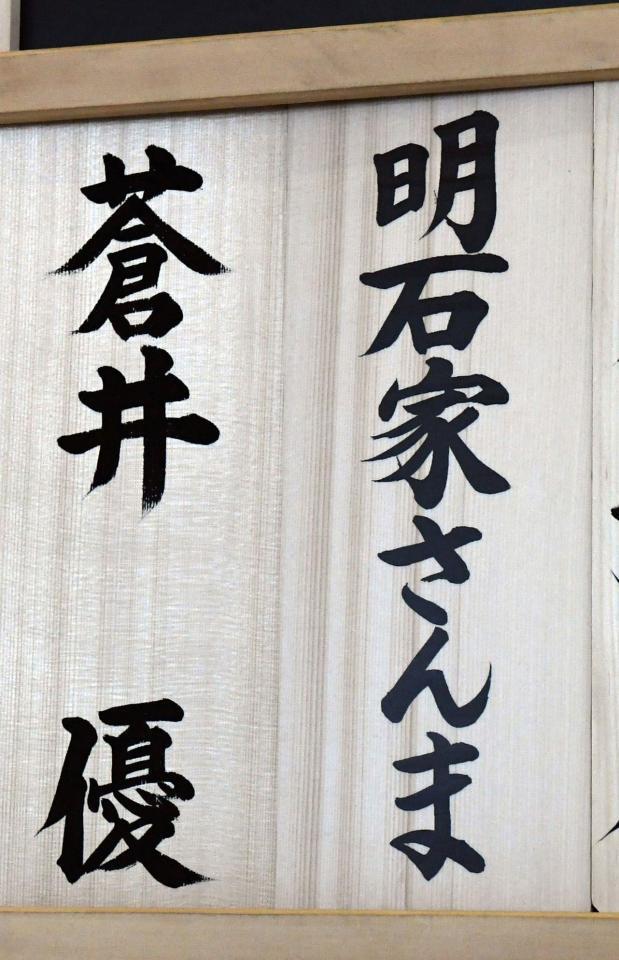 明石家さんま
蒼井 優